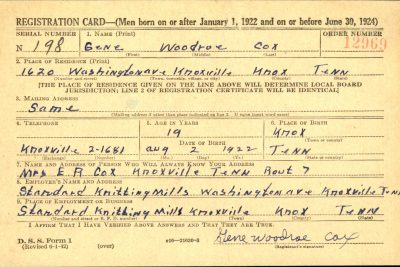 REGISTRATION CARD—(Men born on or after January 1, 1922 and on or before June 30, 1924)
SERIAL NUMBER 1. NAME (Print) ORDER NUMBER
N 198 Gene Woodroe Cox 12969
(First) (Middle) (Last)
2. PLACE OF RESIDENCE (Print)
1620 Washington ave Knoxville Knox Tenn
(Number and street) (Town, township, village, or city) (County) (State)
[THE PLACE OF RESIDENCE GIVEN ON THE LINE ABOVE WILL DETERMINE LOCAL BOARD
JURISDICTION; LINE 2 OF REGISTRATION CERTIFICATE WILL BE IDENTICAL]
3. MAILING ADDRESS
Same
(Mailing address if other than place indicated on line 2. If same insert word same)
4. TELEPHONE 5. AGE IN YEARS 6. PLACE OF BIRTH
19 Knox
DATE OF BIRTH (Town or county)
Knoxville 2-1681 aug 2 1922 Tenn
(Exchange) (Number) (Mo.) (Day) (Yr.) (State or country)
7. NAME AND ADDRESS OF PERSON WHO WILL ALWAYS KNOW YOUR ADDRESS
Mrs E A Cox Knoxville Tenn Rout 7
8. EMPLOYER'S NAME AND ADDRESS
Standard Knitting Mills Washington ave Knoxville Tenn
9. PLACE OF EMPLOYMENT OR BUSINESS
Standard Knitting Mills Knoxville Knox Tenn
(Number and street or R. F. D. number) (Town) (County) (State)
I AFFIRM THAT I HAVE VERIFIED ABOVE ANSWERS AND THAT THEY ARE TRUE.
D. S. S. Form 1
(Revised 6-1-42) (over) Gene Woodroe Cox
(Registrant's signature)